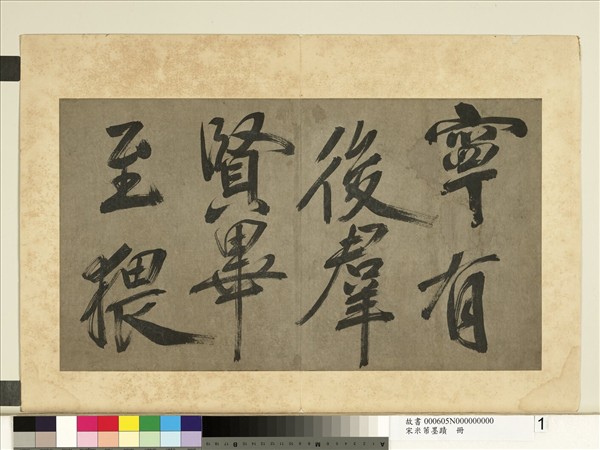 寧有
後羣
賢畢
至猥
故書 000605N000000000
宋米芾墨蹟 冊
1